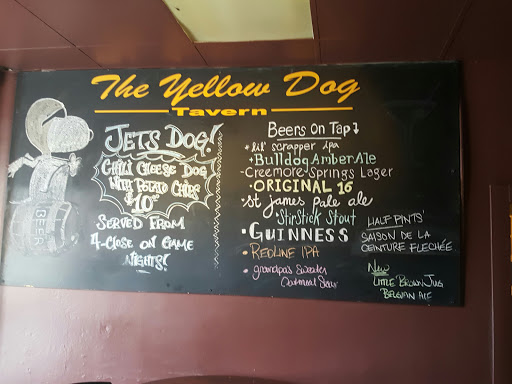 The Yellow Dog
Tavern
JETS DOG!
CHILI CHEESE DOG
WITH POTATO CHIPS
$10
SERVED FROM
4-CLOSE ON GAME
NIGHTS!
BEER
Beers On Tap
• lil' scrapper ipa
• Bulldog Amber Ale
- Creemore Springs Lager
• ORIGINAL 16
• st james pale ale
• Stir Stick Stout
• GUINNESS
• REDLINE IPA
• grandpa's sweater
Oatmeal Stout
HALF PINTS'
SAISON DE LA
CEINTURE FLECHÉE
New
LITTLE BROWN JUG
BELGIAN ALE